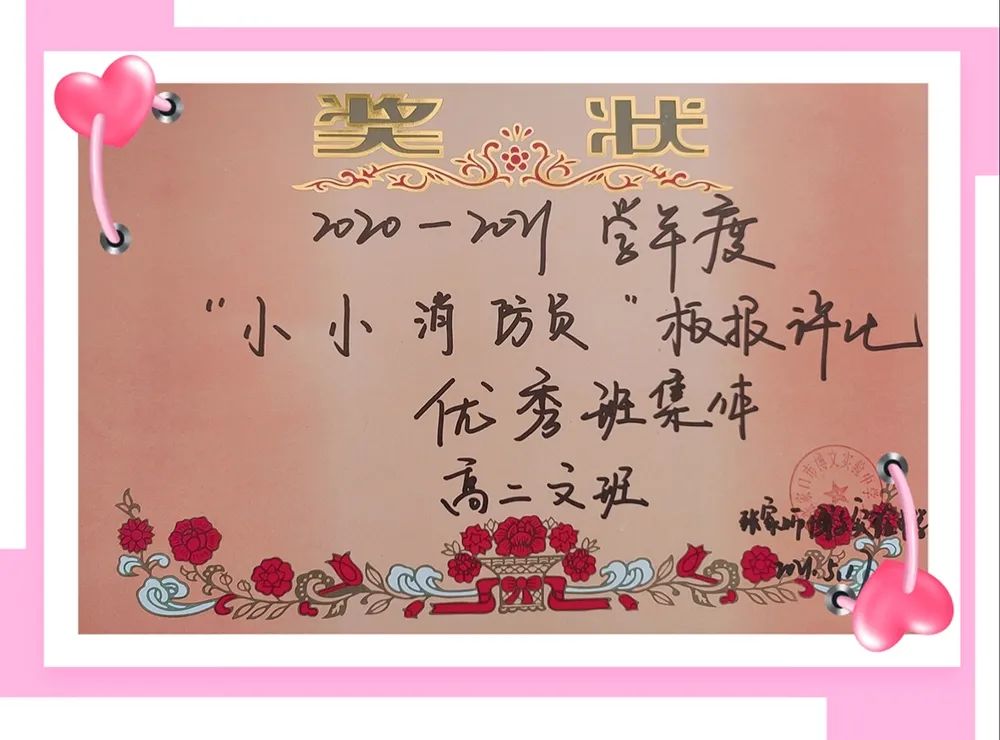 奖 状
2020-2021 学年度
"小小消防员"板报评比
优秀班集体
高二文班
张家口市博文实验中学
2021.5.